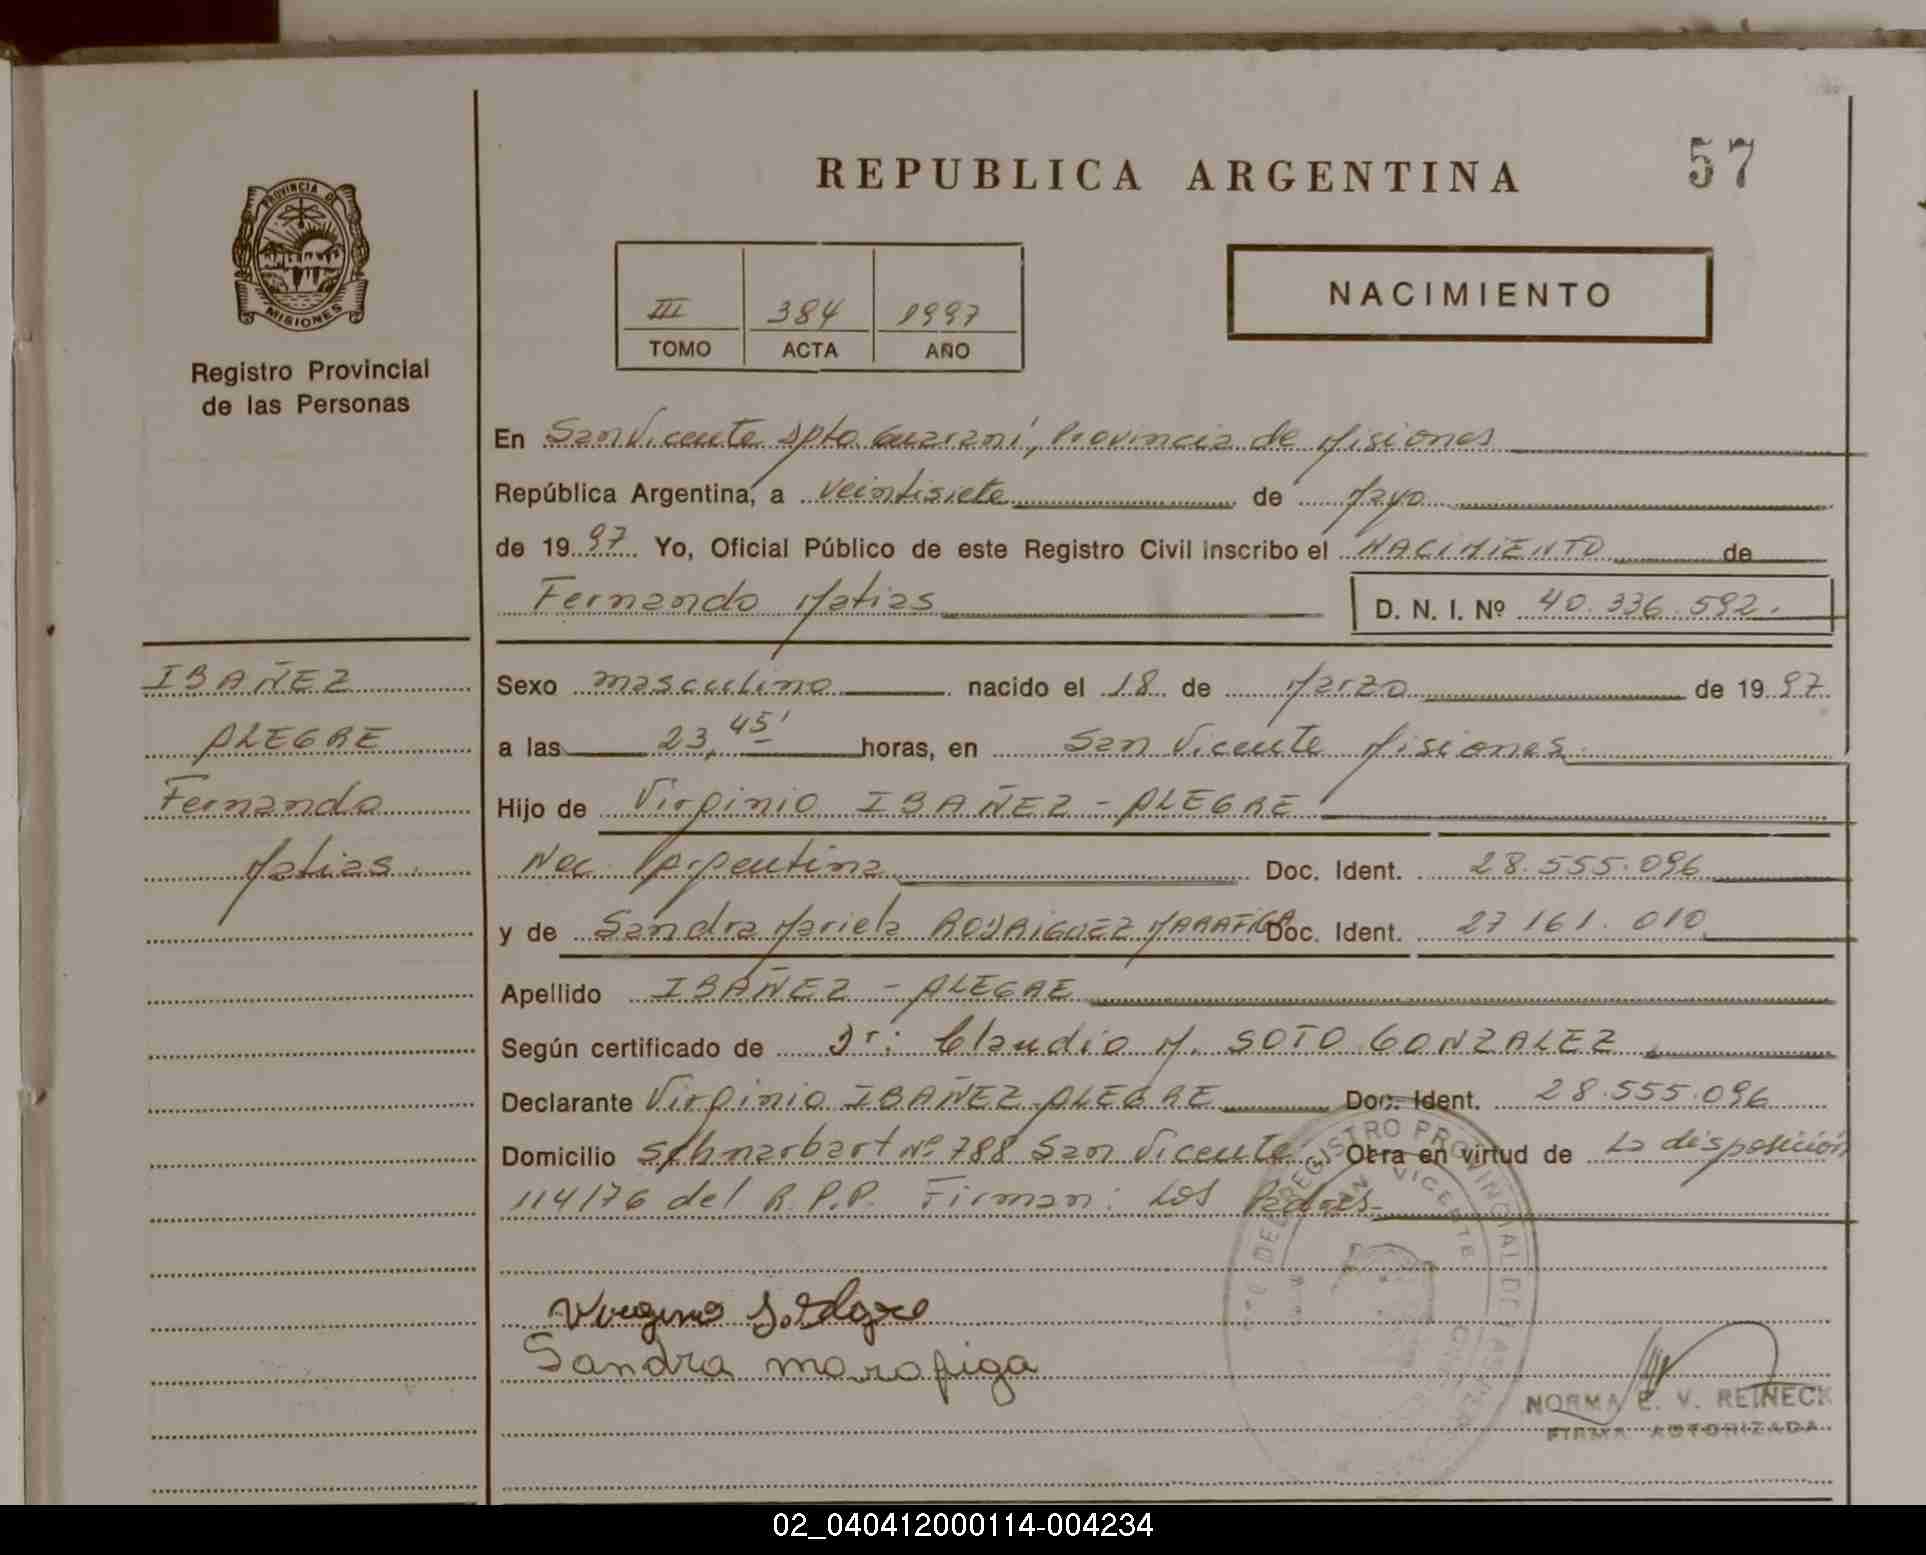 57
REPUBLICA ARGENTINA
PROVINCIA DE
MISIONES
Registro Provincial
de las Personas
III 384 1997
TOMO ACTA AÑO
NACIMIENTO
En San Vicente Dpto Guaraní, Provincia de Misiones
República Argentina, a veintisiete de Mayo
de 1997 Yo, Oficial Público de este Registro Civil inscribo el NACIMIENTO de
Fernando Matias D. N. I. Nº 40.336.592.
IBAÑEZ
ALEGRE
Fernando
Matias.
Sexo masculino nacido el 18 de Marzo de 1997
a las 23,45' horas, en San Vicente Misiones.
Hijo de Virginio IBAÑEZ - ALEGRE
Nac. Argentina Doc. Ident. 28.555.096
y de Sandra Mariela RODRIGUEZ MARAFIGA Doc. Ident. 27 161. 010
Apellido IBAÑEZ - ALEGRE
Según certificado de Dr: Claudio M. SOTO GONZALEZ
Declarante Virginio IBAÑEZ ALEGRE Doc. Ident. 28.555.096
Domicilio Schnarbart Nº 788 San Vicente. Obra en virtud de La disposición
114/76 del R.P.P. Firman: Los Padres-
DEL REGISTRO PROVINCIAL DE LAS PERSONAS
SAN VICENTE
Sandra marafiga
NORMA E. V. REINECK
FIRMA AUTORIZADA
02_040412000114-004234